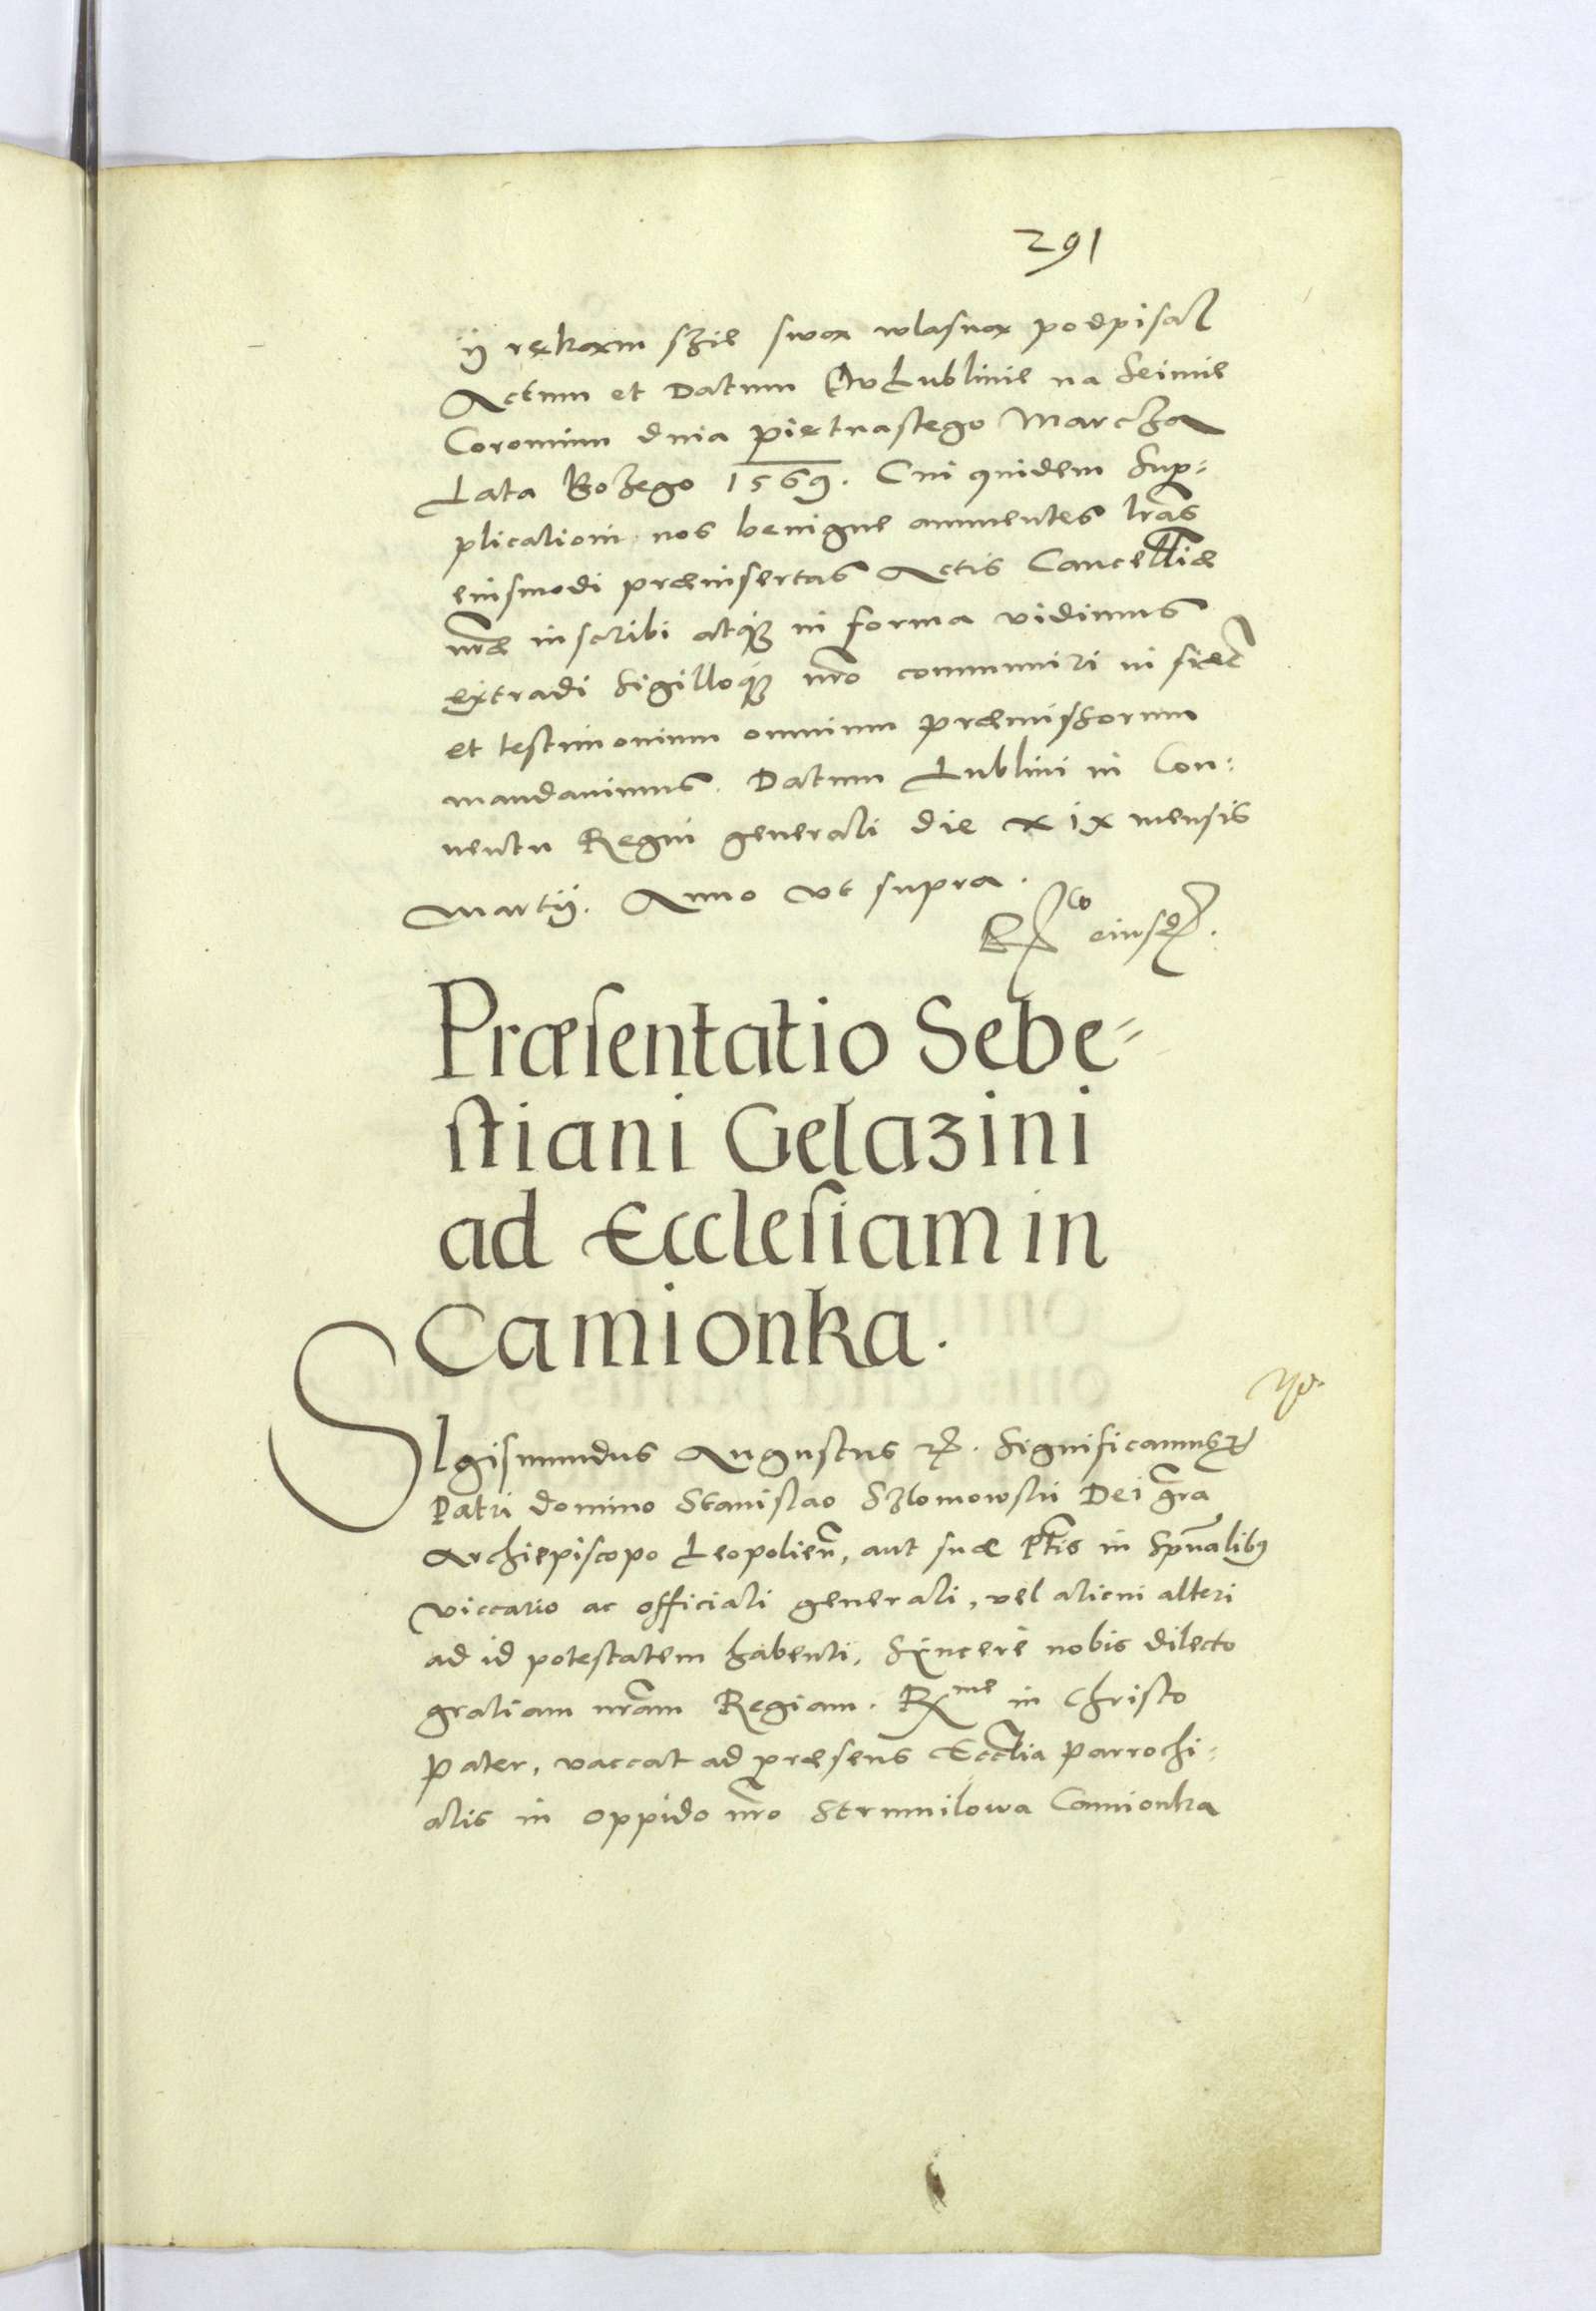 291
ÿ rękąm szie swą wlasną podpisal
Actum et Datum W Lublinie na Seimie
Coronnim dnia piętnastego Marcza
Lata Bozego 1569. Cui quidem Sup-
plicationi nos benigne annuentes lras
eiusmodi præinsertas Actis Cancellriæ
nræ inscribi atq3 in forma vidimus
extradi Sigilloq3 nro communiri in fidẽ
et testimonium omnium præmissorum
mandauimus. Datum Lublini in Con-
uentu Regni generali die xix mensis
Martÿ. Anno vt supra.
Rx eiusd.
Præsentatio Sebe-
stiani Gelazini
ad Ecclesiam in
Camionka.
SIgismundus Augustus Rx. Significamus
Patri domino Stanislao Szlomowski Dei gra
Archiepiscopo Leopolien̄, aut suæ Ptis in Spualibus
viccario ac officiali generali, vel alicui alteri
ad id potestatem habenti, Sÿncere nobis dilecto
gratiam nram Regiam. Rx me in Christo
Pater, vaccat ad præsens Ecclia Parrochi-
alis in oppido nro Strumilowa Camionka